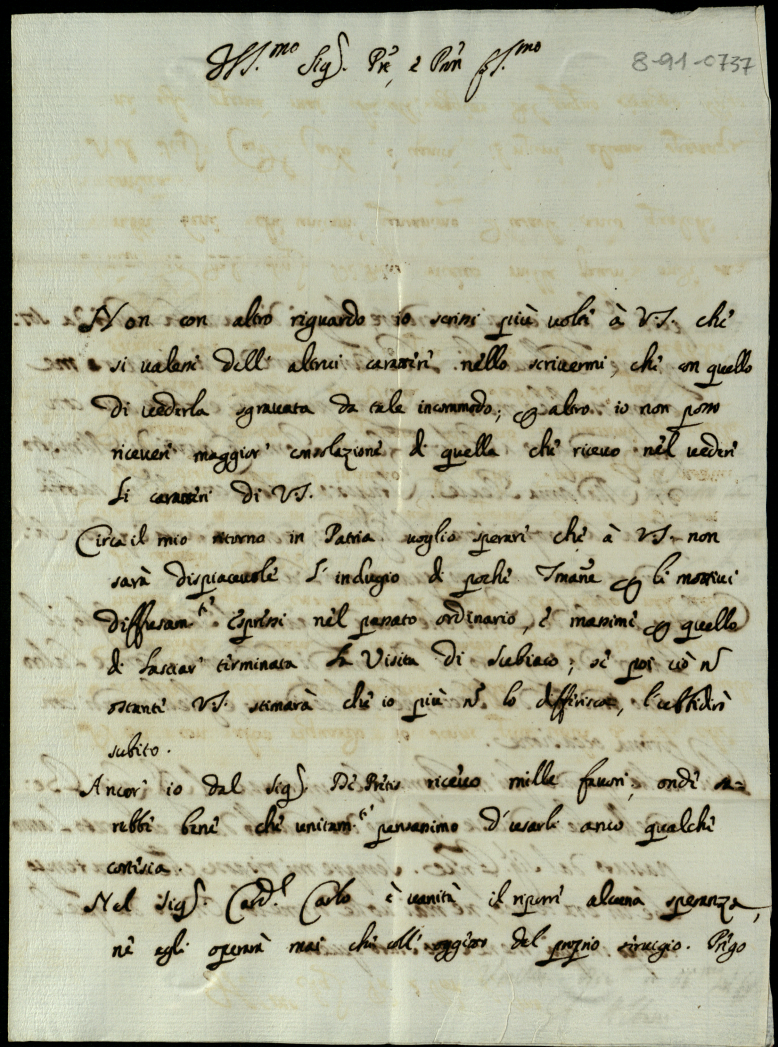 Ill.mo Sig.r Pre, e Pron
8-91-0737
Non con altro riguardo io scrissi più volte à V.S. che
si valesse delli altrui caratteri nello scrivermi, che con quello
di vederla sgravata da tale incommodo; altro io non posso
ricevere maggior consolazione di quella che ricevo nel vedere
li caratteri di V.S.
Circa il mio ritorno in Patria voglio sperare che à V.S. non
sarà dispiacevole l'indugio di poche li mottivi
diffusam.te espressi nel passato ordinario, e massime quello
di lasciar terminata la Visita di Subiaco; se poi ciò nō
ostante V.S. stimarà che io più nō lo differisca, l'ubbidirò
subito.
Ancor io dal Sig.r De Pretis ricevo mille favori, onde sa=
rebbe bene che unitam.te pensassimo d'usarli anco qualche
cortesia.
Nel Sig.r Card.l Carlo è vanità il riporre alcuna speranza,
nè egli operarà mai che coll' oggetto del proprio servigio. Prego